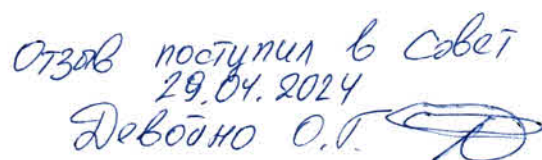 Отзыв поступил в Совет
29.04.2024
Девойно О.Г.